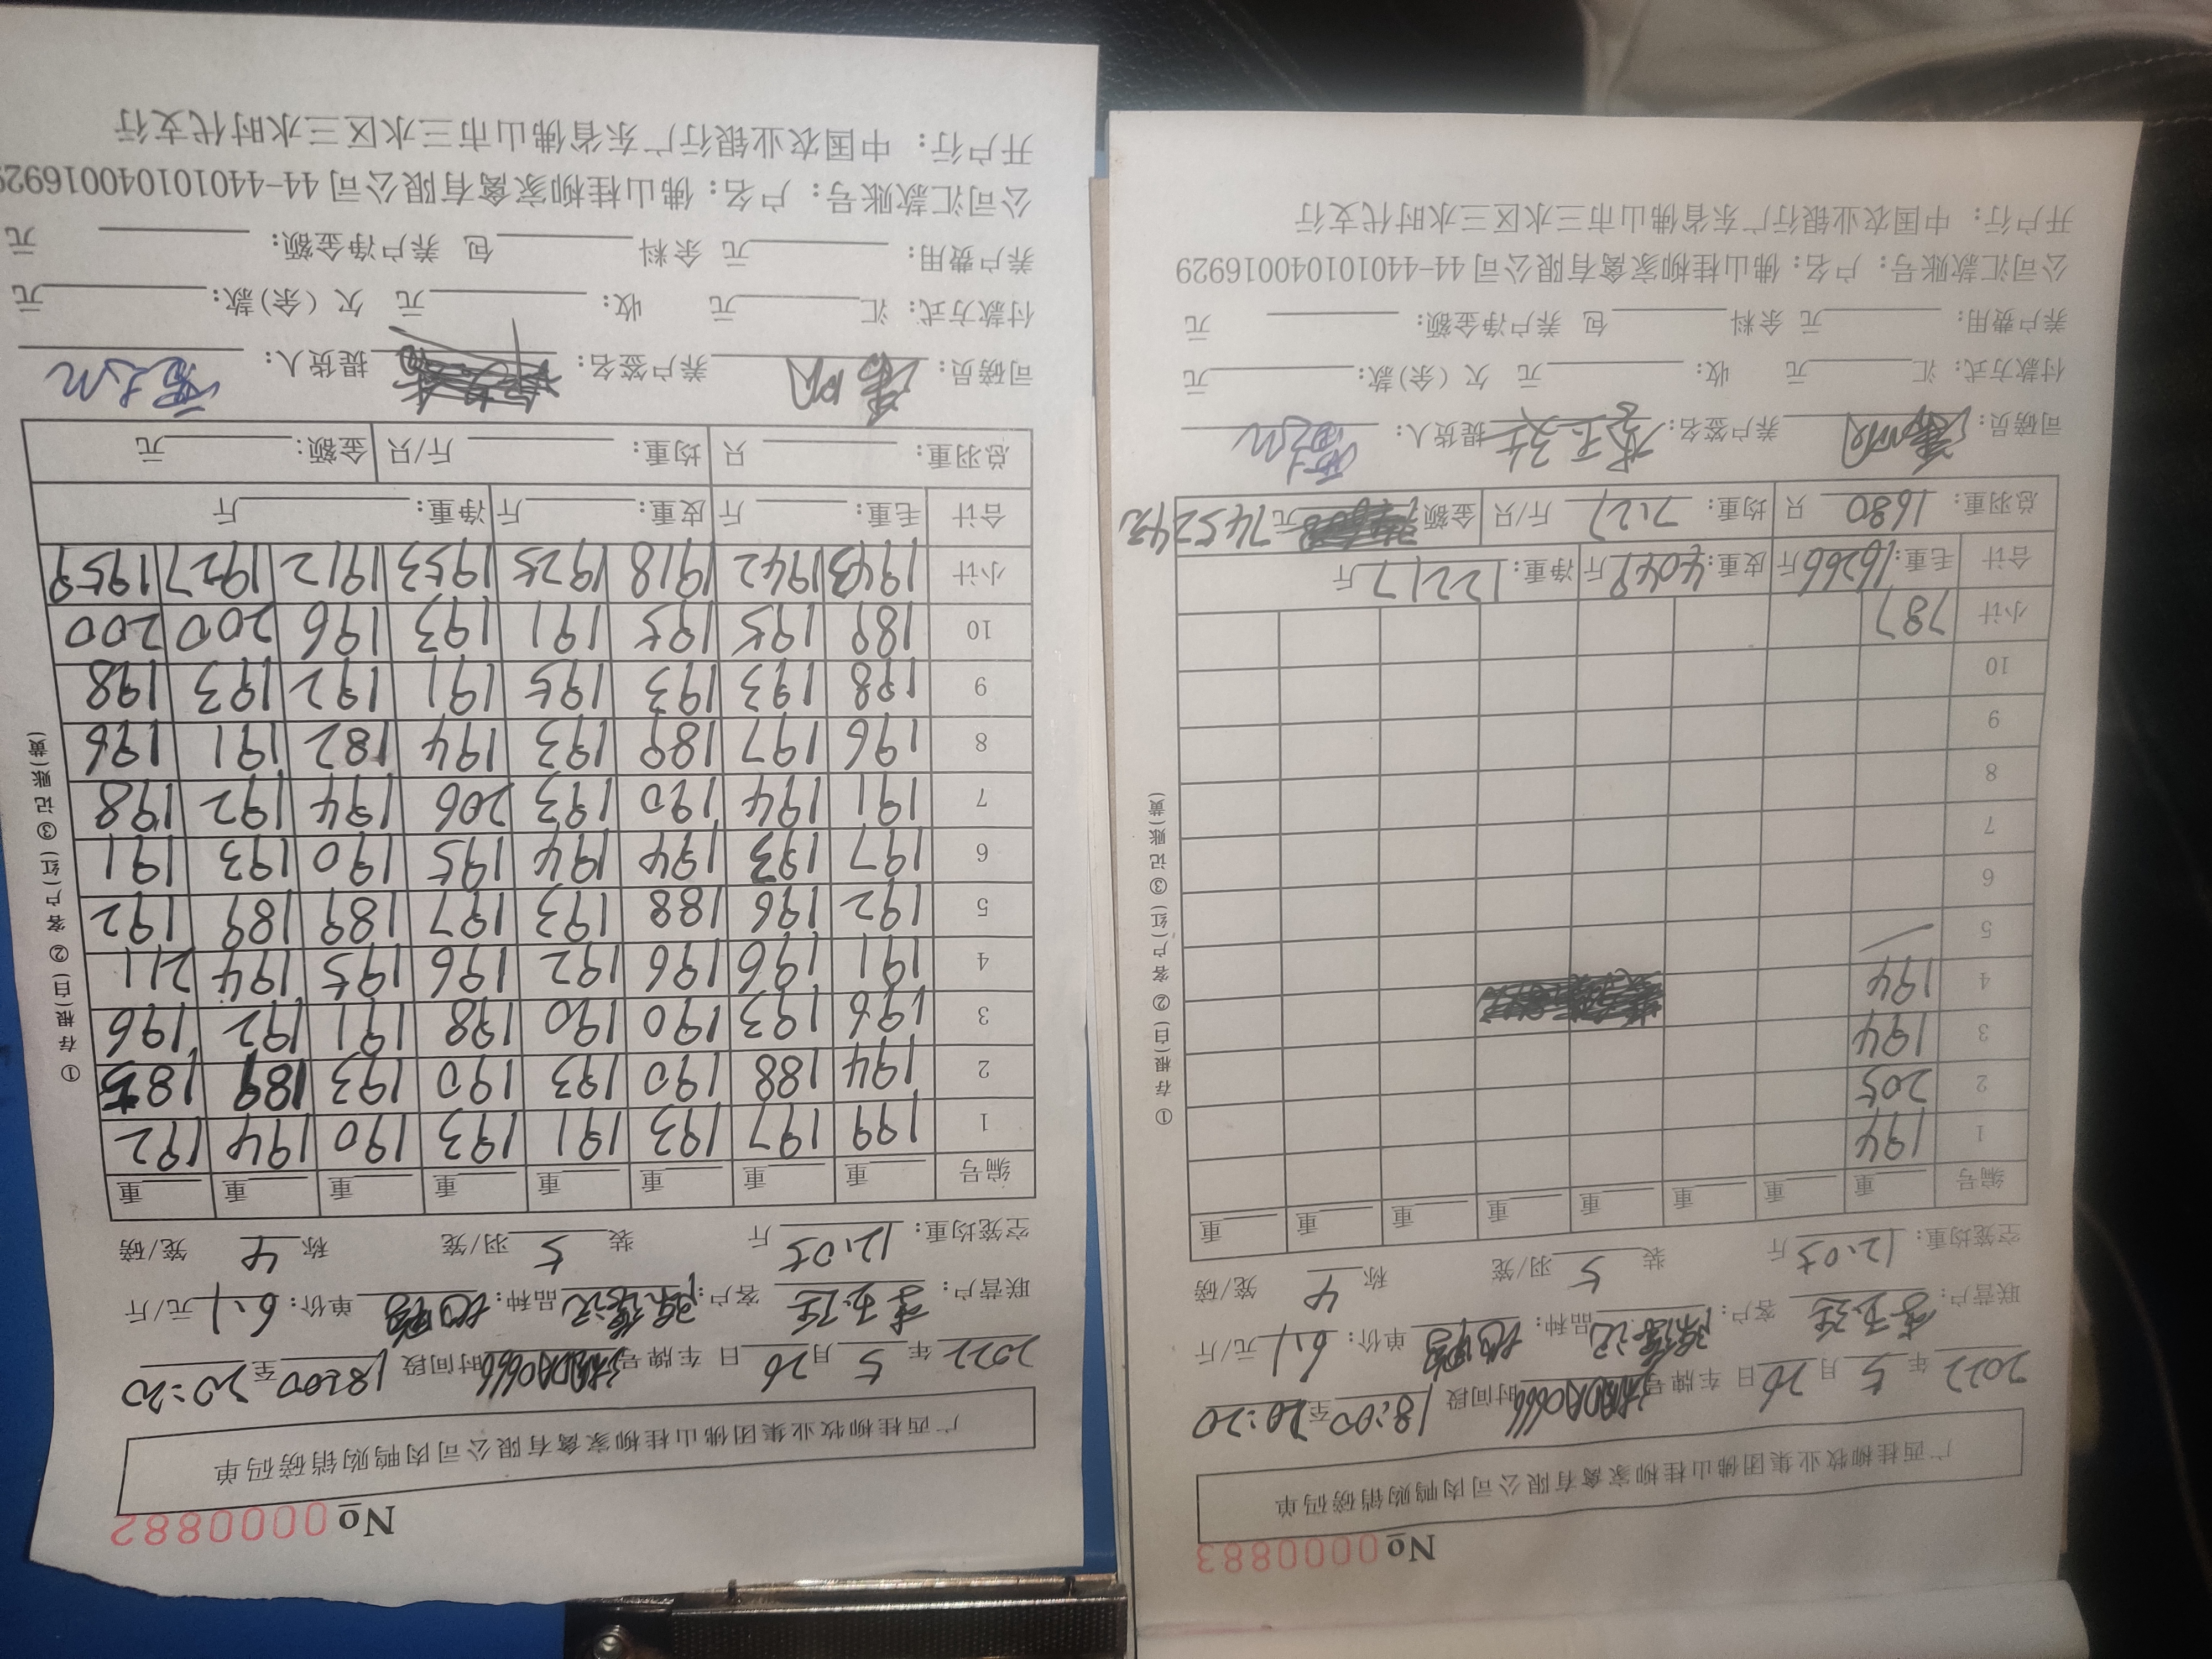 No 0000882
广西桂柳牧业集团佛山桂柳家禽有限公司肉鸭购销磅码单
2022年 5月 26日 车牌号 时间段 18:00 至 20:20
联营户: 客户: 品种: 单价: 6.1 元/斤
空笼均重: 12.05 斤 装 5 羽/笼 称 4 笼/磅
编号 重 重 重 重 重 重 重 重
1 199 197 193 191 193 190 194 192
2 194 188 190 193 190 193 189 185
3 196 193 190 190 198 191 192 196
4 191 196 196 192 196 195 194 211
5 192 196 188 193 197 189 189 192
6 197 193 194 194 195 190 193 191
7 191 194 190 193 206 194 192 198
8 196 197 189 193 194 182 191 196
9 198 193 193 195 191 192 193 198
10 189 195 195 191 193 196 200 200
小计 1943 1942 1918 1925 1953 1912 1927 1959
合计 毛重: 斤 皮重: 斤 净重: 斤
总羽重: 只 均重: 斤/只 金额: 元
司磅员: 养户签名: 提货人:
付款方式: 汇 元 收: 元 欠(余)款: 元
养户费用: 元 余料 包 养户净金额: 元
公司汇款账号: 户名: 佛山桂柳家禽有限公司 44-440101040016929
开户行: 中国农业银行广东省佛山市三水区三水时代支行
①存根(白) ②客户(红) ③记账(黄)
No 0000883
广西桂柳牧业集团佛山桂柳家禽有限公司肉鸭购销磅码单
2022年 5月 26日 车牌号 时间段 18:00 至 20:20
联营户: 客户: 品种: 单价: 6.1 元/斤
空笼均重: 12.05 斤 装 5 羽/笼 称 4 笼/磅
编号 重 重 重 重 重 重 重 重
1 194
2 205
3 194
4 194
5
6
7
8
9
10
小计 787
合计 毛重: 16266 斤 皮重: 4049 斤 净重: 12217 斤
总羽重: 1680 只 均重: 7.27 斤/只 金额: 元 74524元
司磅员: 养户签名: 提货人:
付款方式: 汇 元 收: 元 欠(余)款: 元
养户费用: 元 余料 包 养户净金额: 元
公司汇款账号: 户名: 佛山桂柳家禽有限公司 44-440101040016929
开户行: 中国农业银行广东省佛山市三水区三水时代支行
①存根(白) ②客户(红) ③记账(黄)